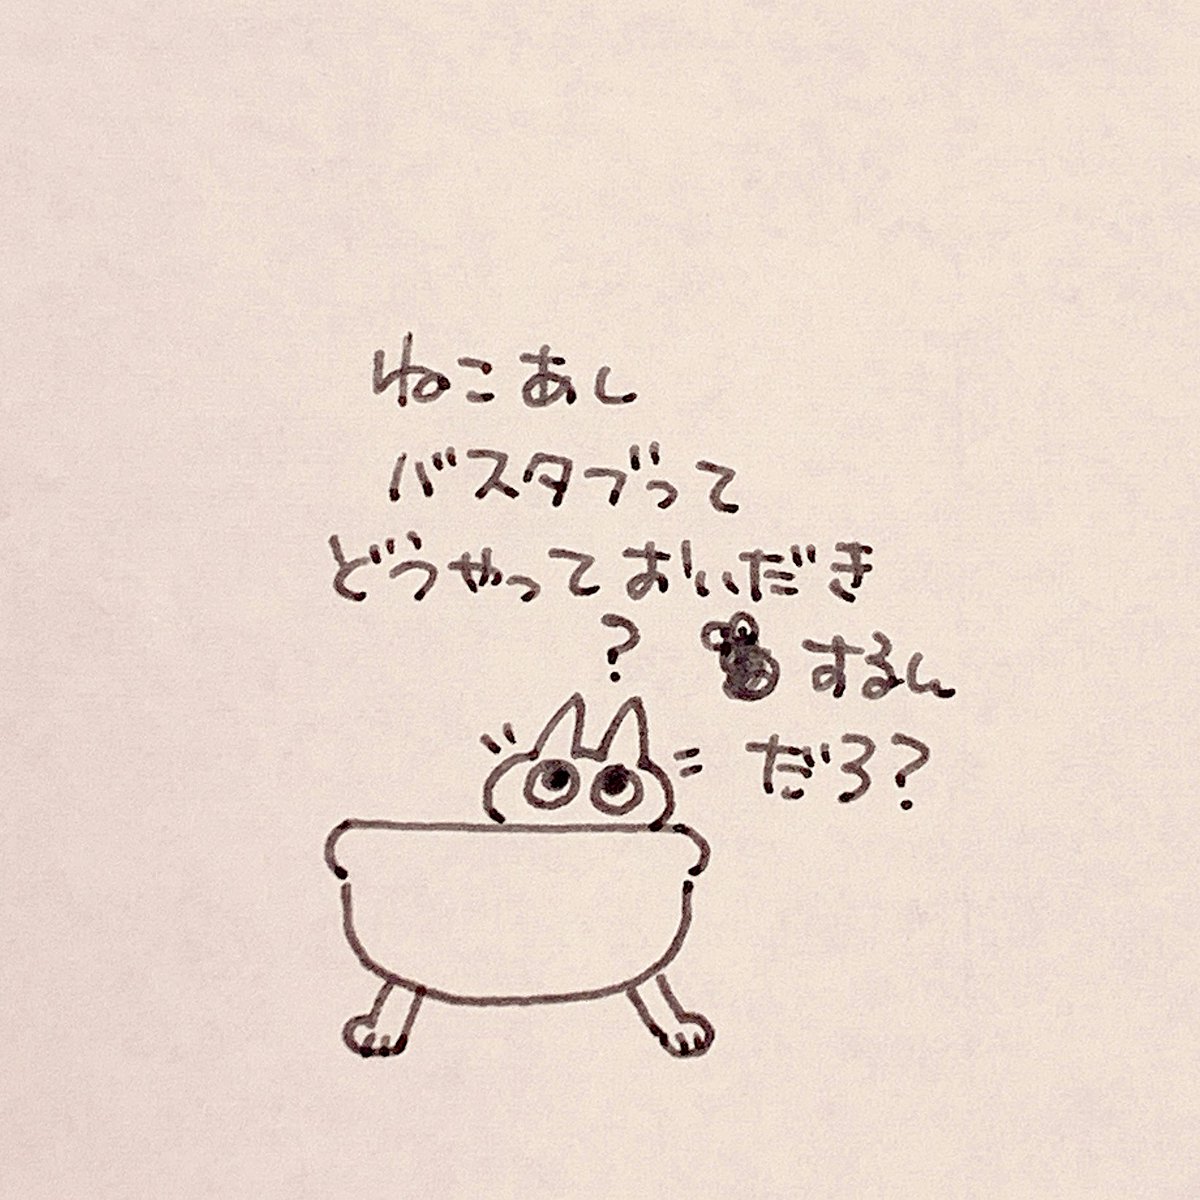 ねこあし
バスタブって
どうやっておいだき
するん
だろ?
?